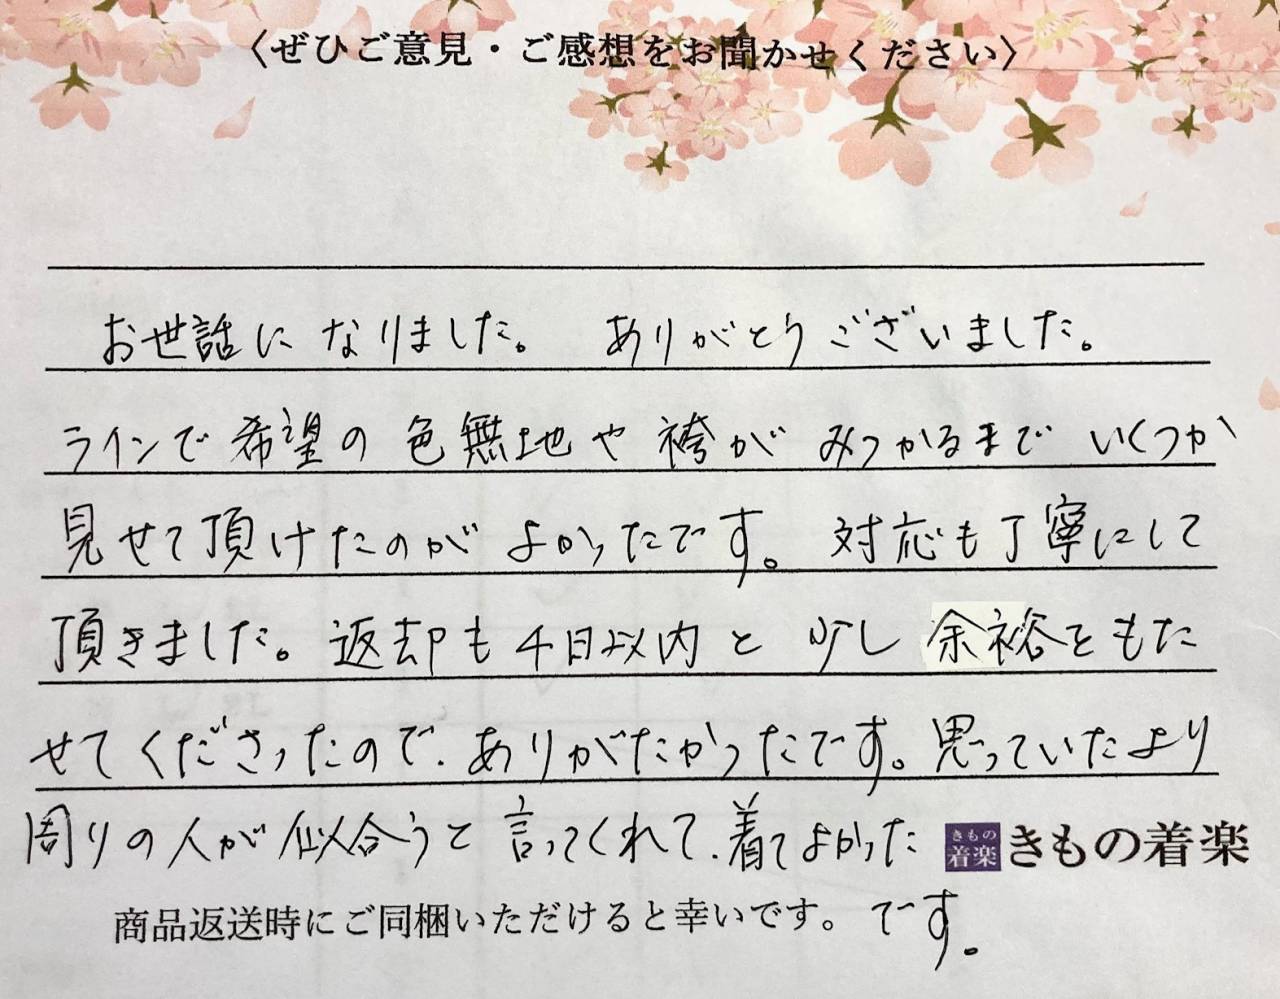 〈ぜひご意見・ご感想をお聞かせください〉
お世話になりました。 ありがとうございました。
ラインで希望の色無地や袴がみつかるまでいくつか
見せて頂けたのがよかったです。対応も丁寧にして
頂きました。返却も4日以内と少し余裕をもた
せてくださったので、ありがたかったです。思っていたより
周りの人が似合うと言ってくれて、着てよかった
きもの
着楽
きもの着楽
商品返送時にご同梱いただけると幸いです。
です。